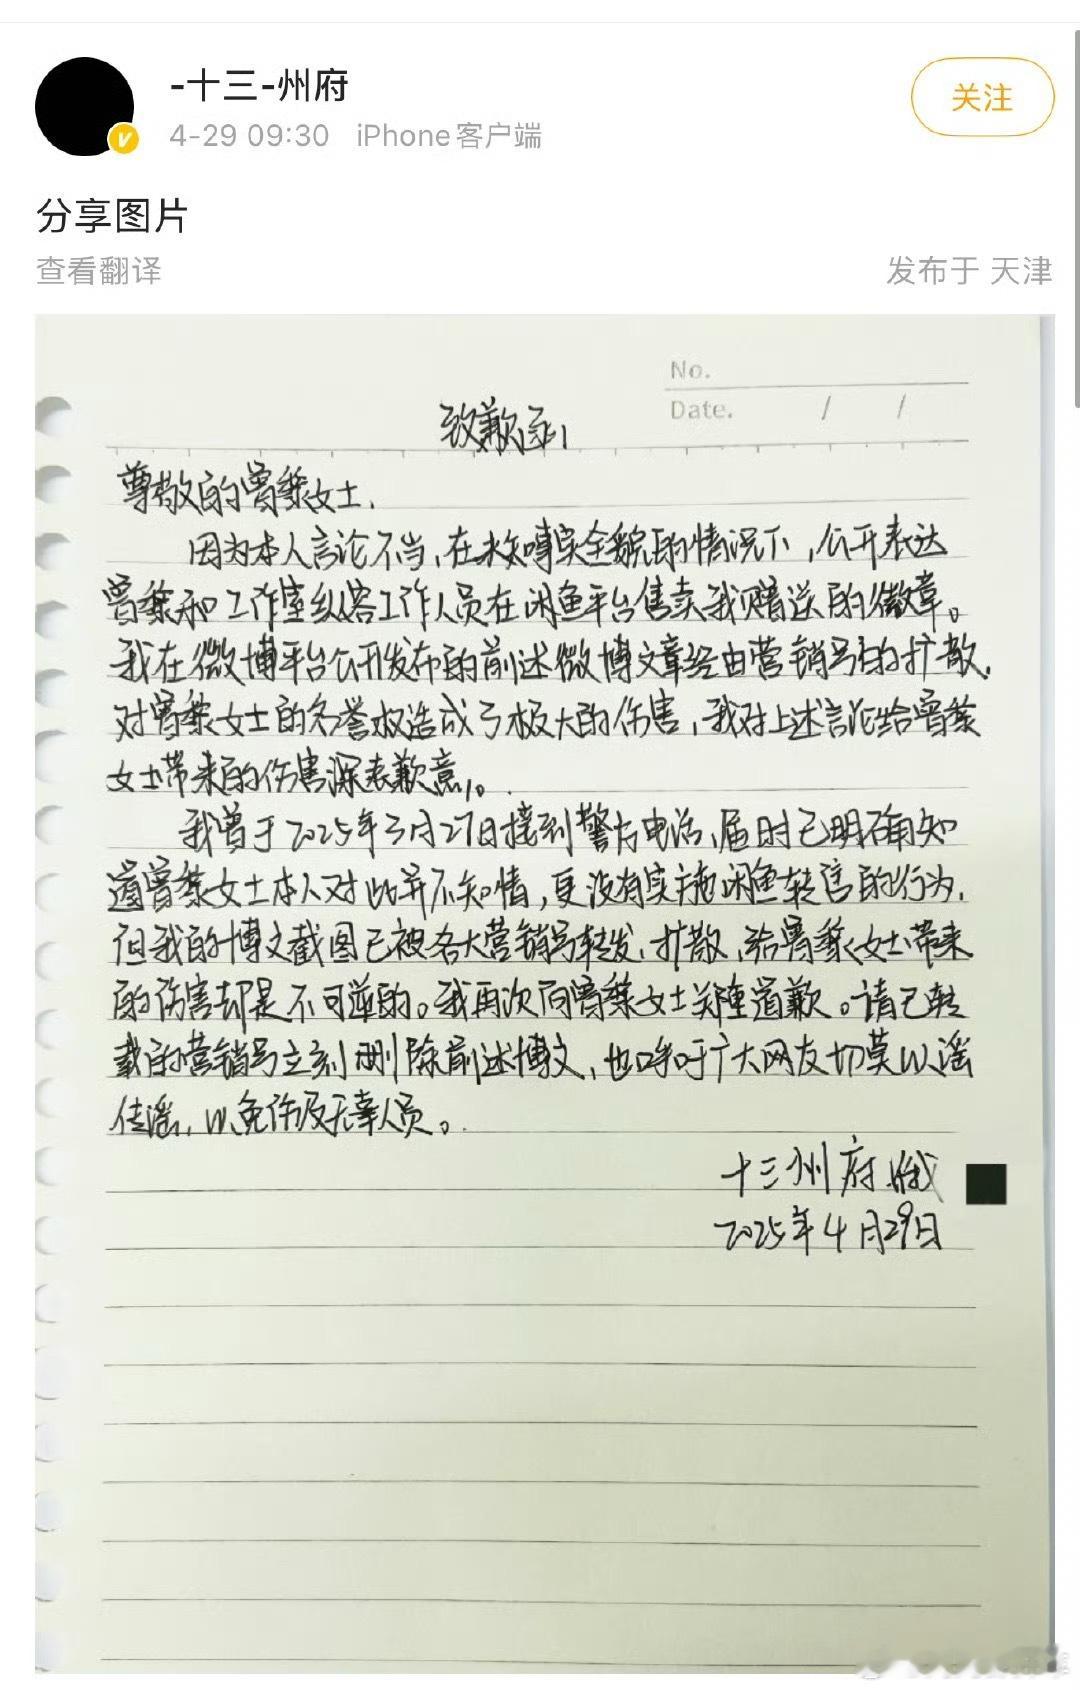 -十三-州府
4-29 09:30 iPhone客户端
关注
分享图片
查看翻译
发布于 天津
No.
Date. / /
致歉函
尊敬的曾黎女士，
因为本人言论不当，在未知事实全貌的情况下，公开表达
曾黎和工作室纵容工作人员在闲鱼平台售卖我赠送的徽章。
我在微博平台公开发布的前述微博文章经由营销号的扩散，
对曾黎女士的名誉权造成了极大的伤害，我对上述言论给曾黎
女士带来的伤害深表歉意。
我曾于2025年3月27日接到警方电话，届时已明确知
道曾黎女士本人对此并不知情，更没有实施闲鱼转售的行为，
但我的博文截图已被各大营销号转发、扩散，给曾黎女士带来
的伤害却是不可逆的。我再次向曾黎女士郑重道歉。请已转
载的营销号立刻删除前述博文，也呼吁广大网友切莫以谣
传谣，以免伤及无辜人员。
十三州府
2025年4月29日